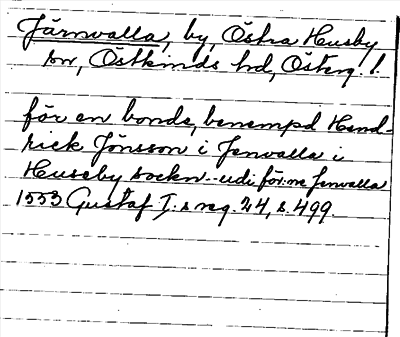 Järnvalla, by, Östra Husby
sn, Östkinds hd, Österg. l.
för en bonde, benempd Hend-
rick Jönsson i Jenvalla i
Huseby sockn -- udi för:ne Jenvalla
1553 Gustaf I:s reg. 24, s. 499.